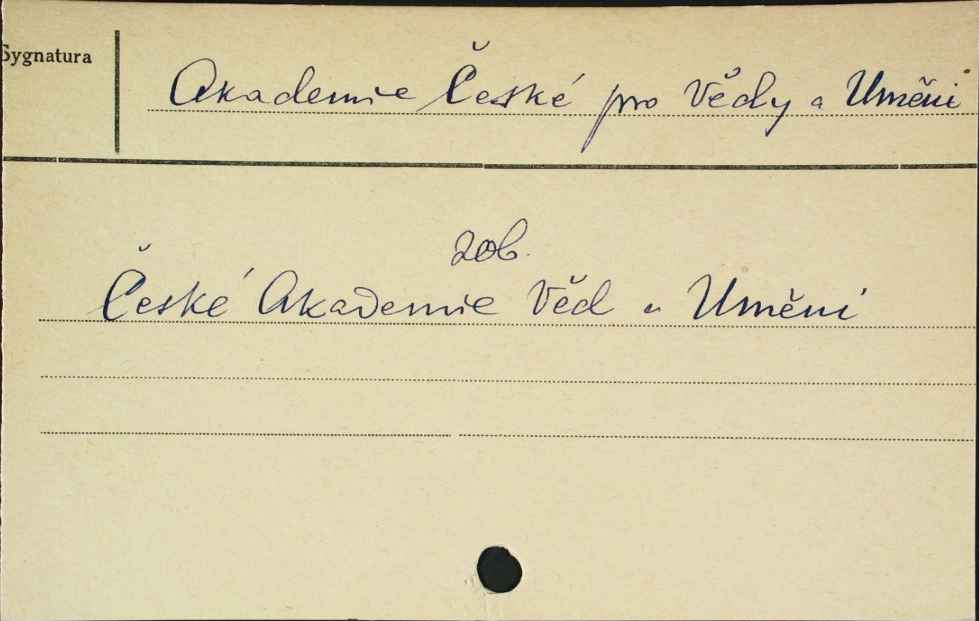 Sygnatura
Akademie České pro Vědy a Uměni
zob.
České Akademie Věd a Uměni